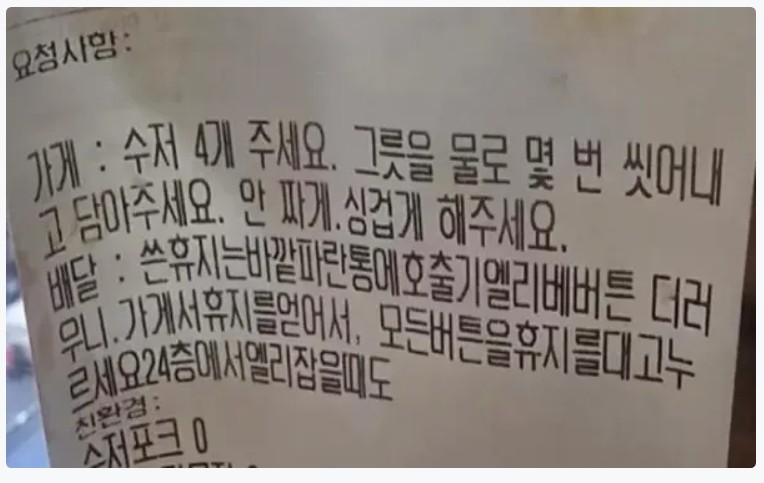 요청사항:
가게 : 수저 4개 주세요. 그릇을 물로 몇 번 씻어내
고 담아주세요. 안 짜게.싱겁게 해주세요.
배달 : 쓴휴지는바깥파란통에호출기엘리베버튼 더러
우니.가게서휴지를얻어서, 모든버튼을휴지를대고누
르세요24층에서엘리잡을때도
친환경:
수저포크 0